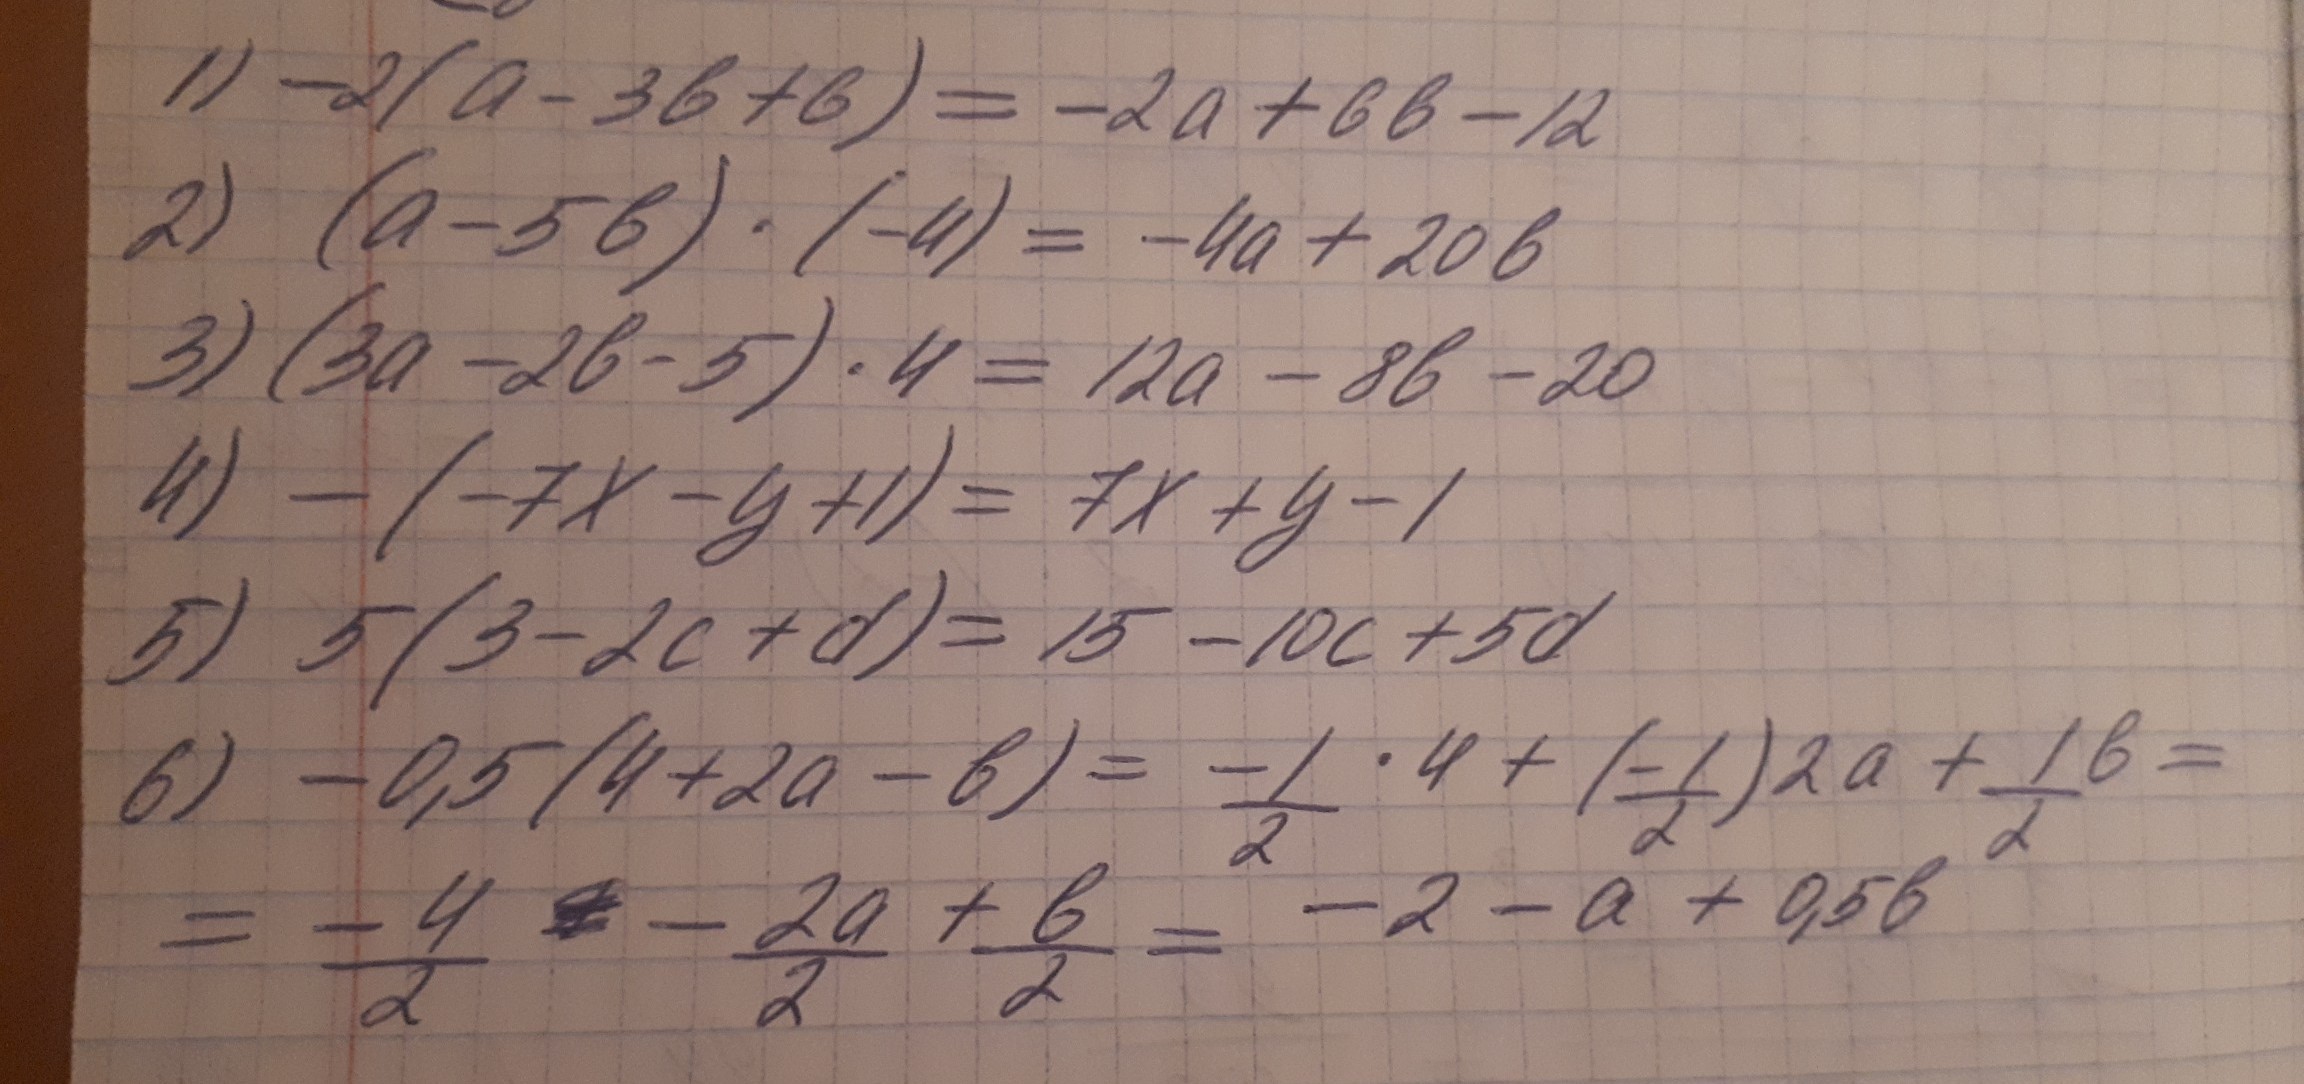 1) -2(a - 3b + 6) = -2a + 6b - 12
2) (a - 5b) · (-4) = -4a + 20b
3) (3a - 2b - 5) · 4 = 12a - 8b - 20
4) - (-7x - y + 1) = 7x + y - 1
5) 5(3 - 2c + d) = 15 - 10c + 5d
6) -0,5(4 + 2a - b) = -1/2 · 4 + (-1/2)2a + 1/2 b =
= -4/2 - 2a/2 + b/2 = -2 - a + 0,5b